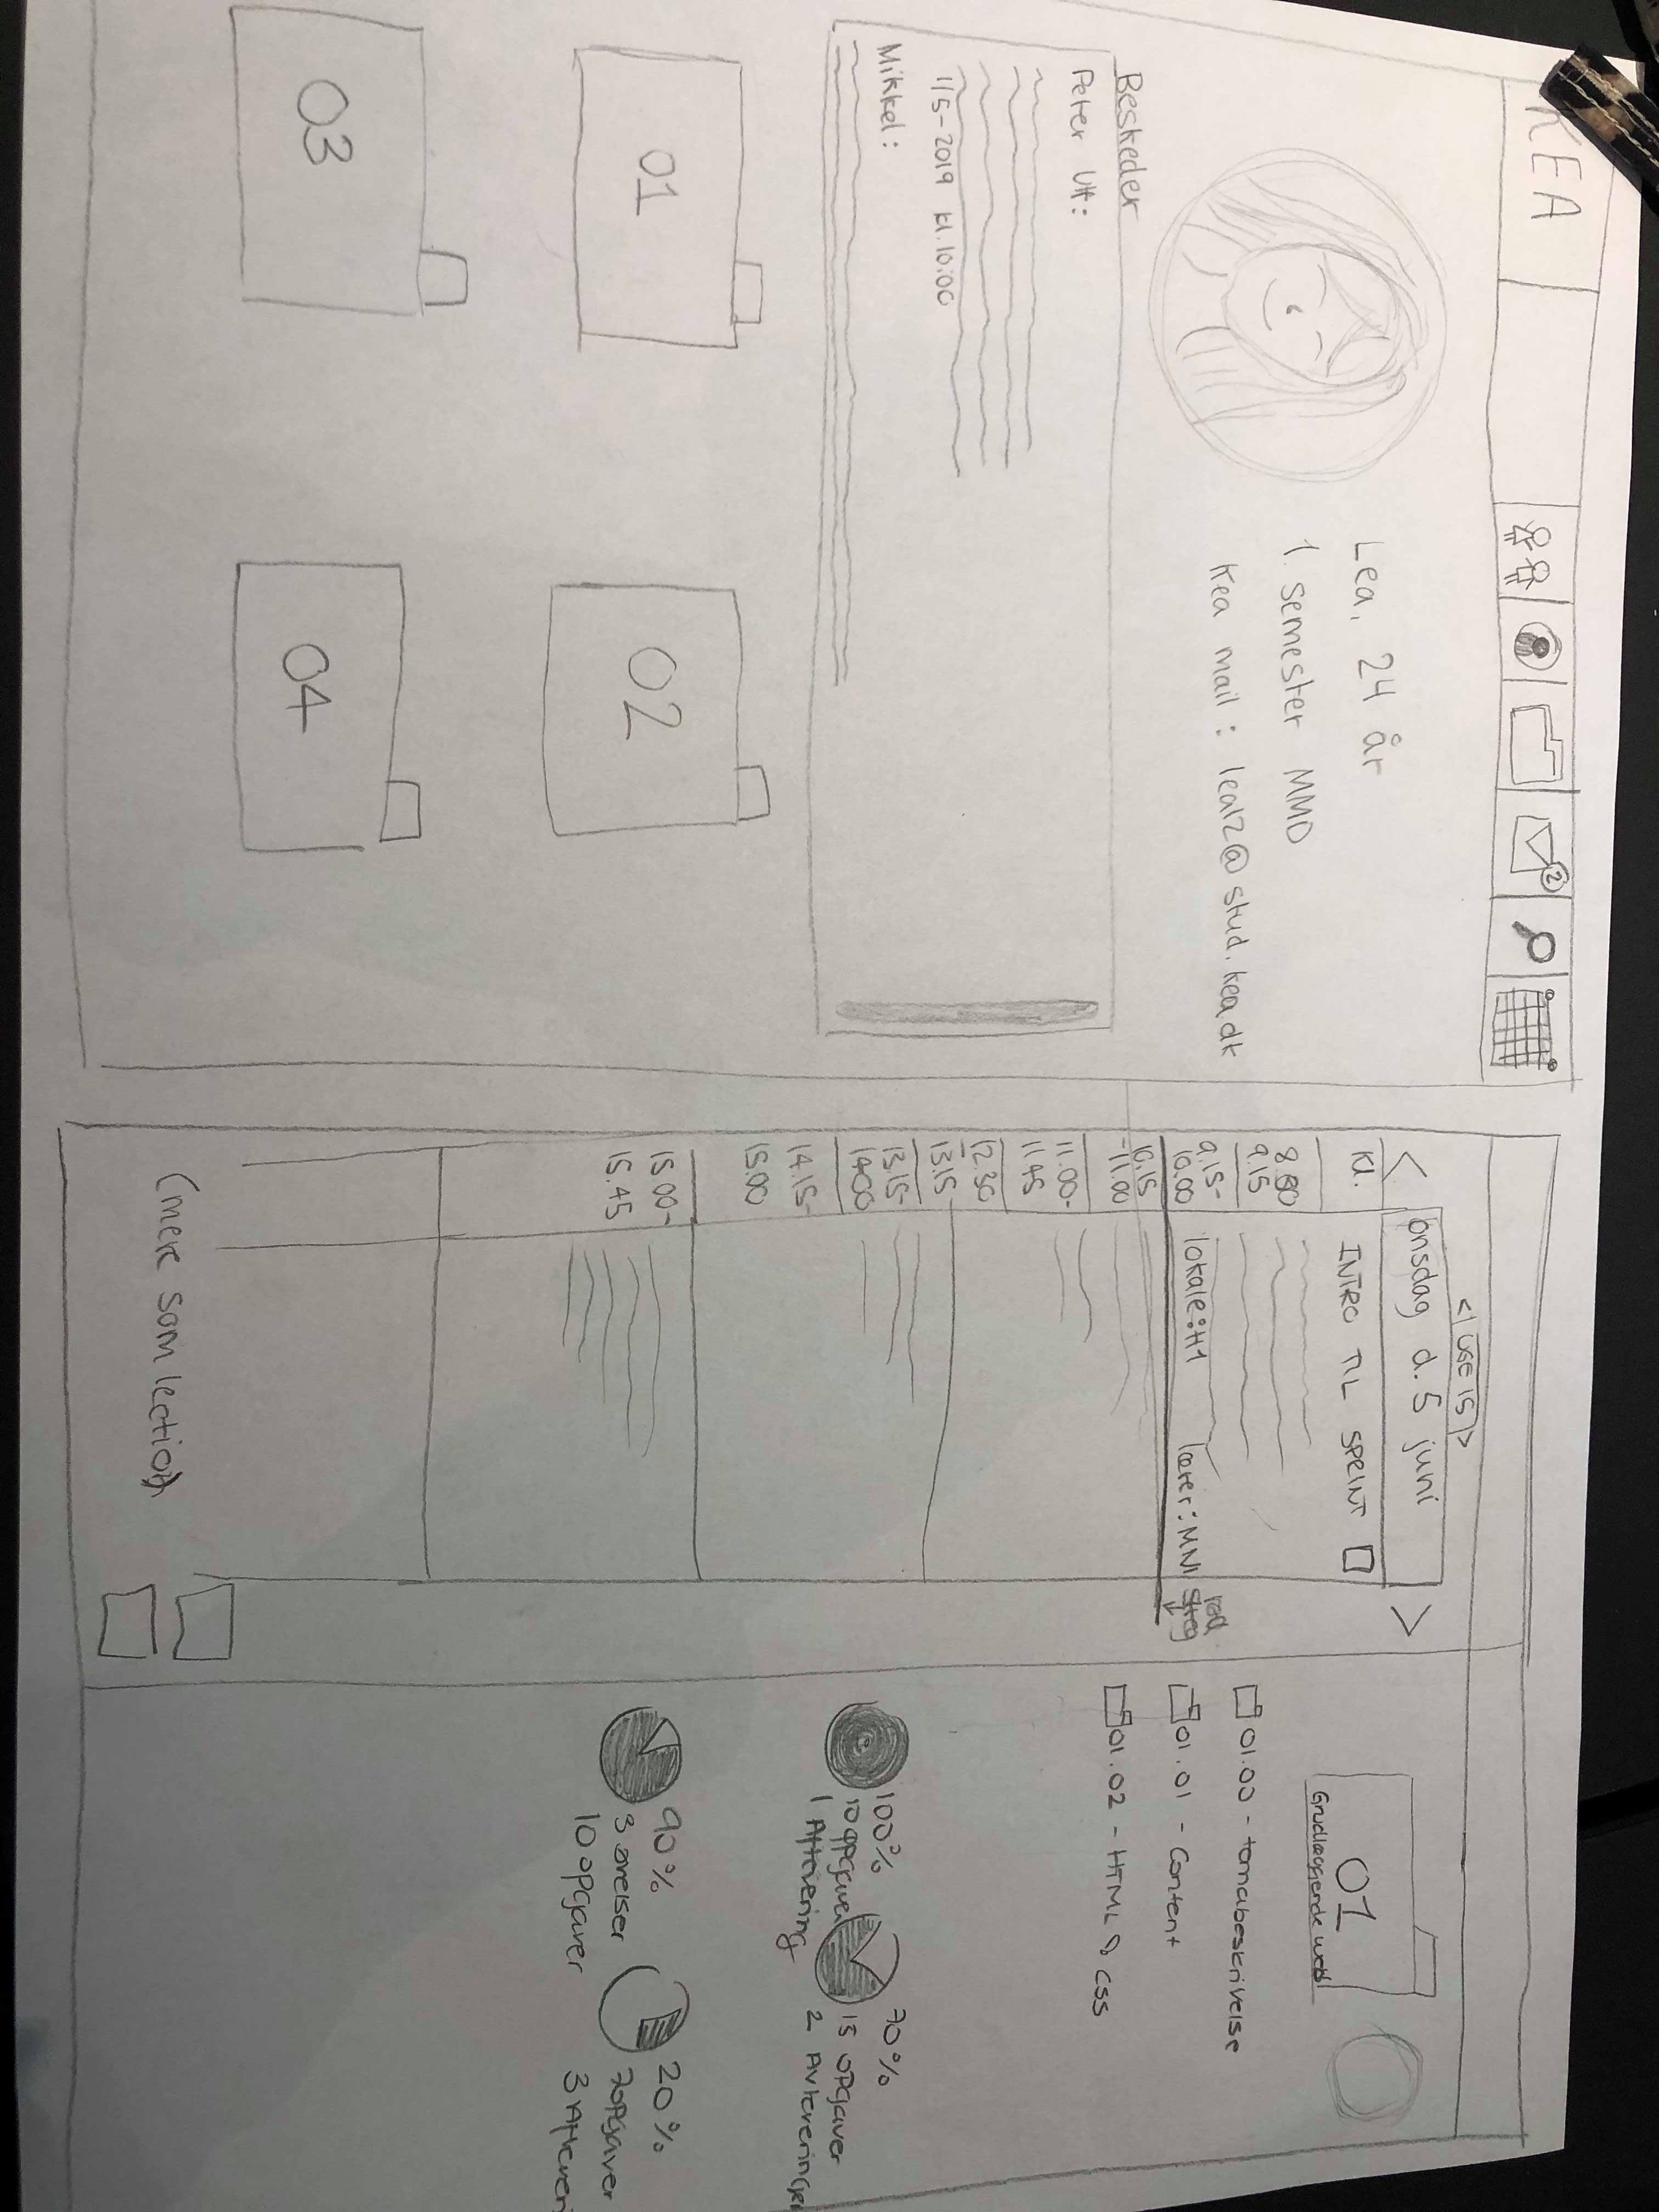 KEA
2
Lea, 24 år
1. semester MMD
Kea mail: lea12@stud.kea.dk
Beskeder
Peter Ulf:
1/5-2019 kl. 10:00
Mikkel:
01
02
03
04
< UGE 15 >
< onsdag d. 5 juni >
Kl.
INTRO TIL SPRINT
8.30
9.15
9.15-
10.00
lokale: H1 lærer: MNI
rød
streg
10.15
-11.00
11.00-
11.45
12.30
-
13.15
13.15-
14.00
14.15-
15.00
15.00-
15.45
(mere som lection)
01
Grudlæggende web
01.00 - temabeskrivelse
01.01 - Content
01.02 - HTML & CSS
100%
10 opgaver
1 Aflevering
70%
15 opgaver
2 Avleveringer
90%
3 øvelser
10 opgaver
20%
7 opgaver
3 Afleveri